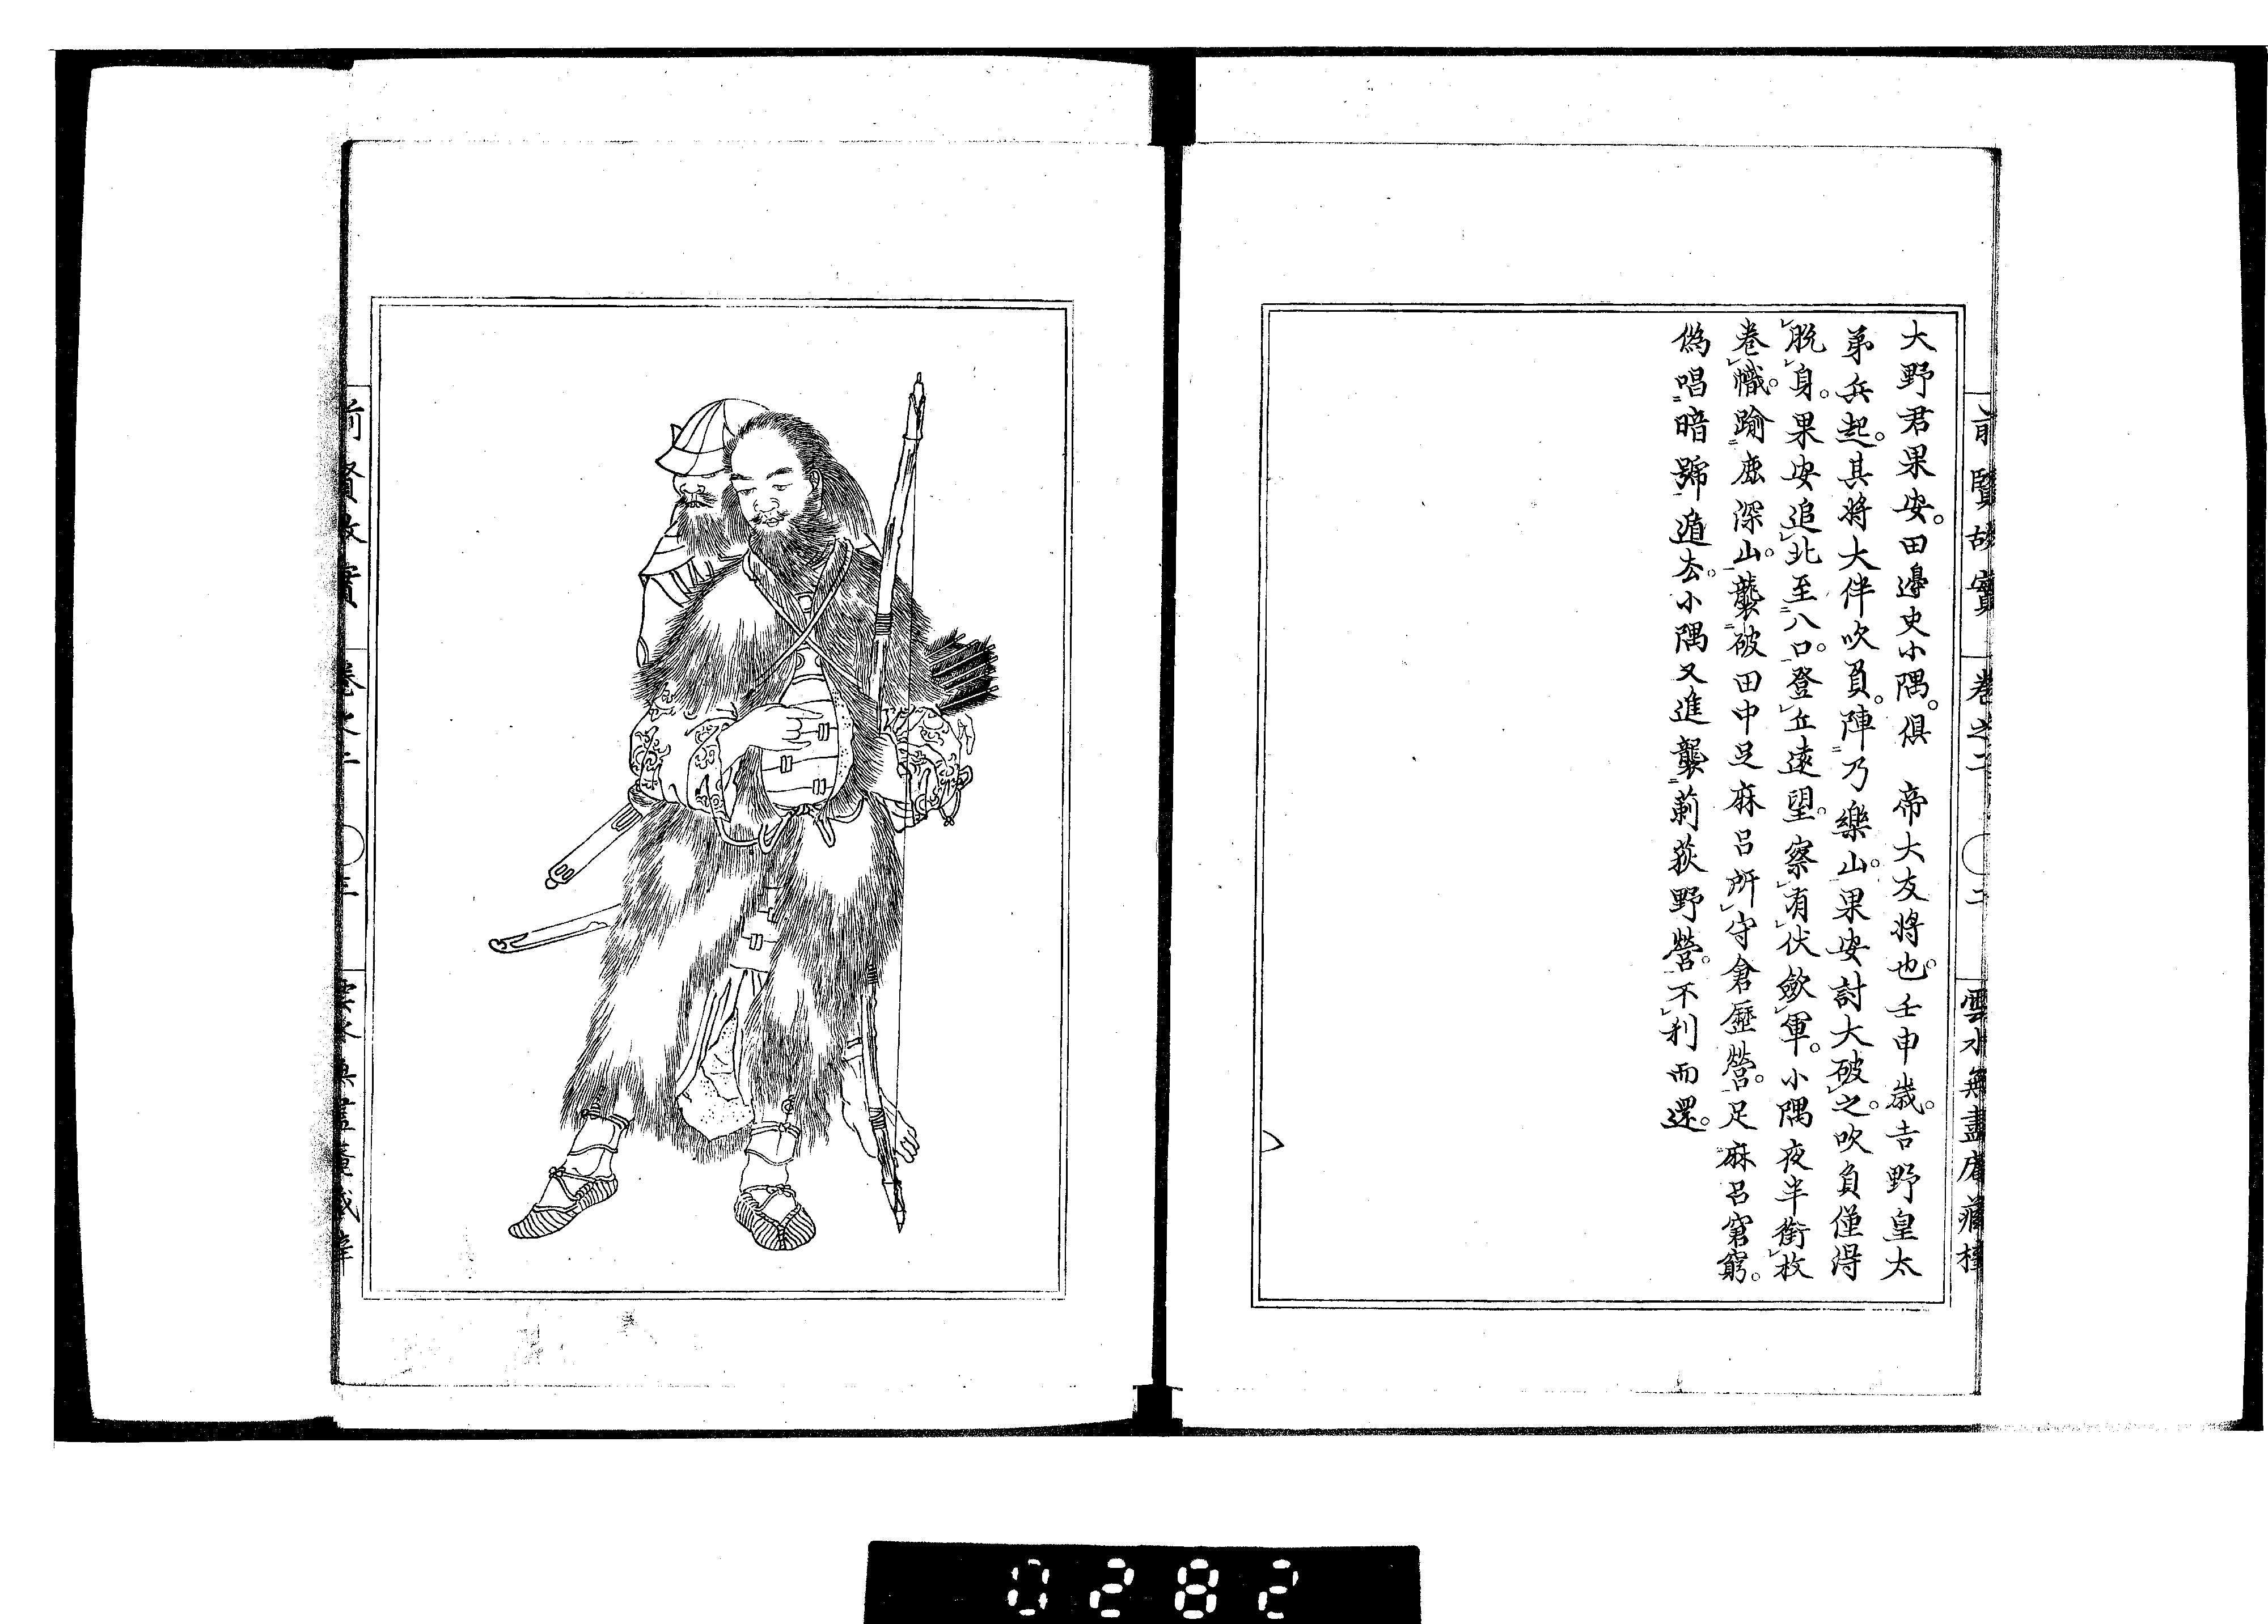 前賢故實 卷之二 〇二 雲水無盡庵藏梓
大野君果安。田邊史小隅。俱 帝大友將也。壬申歲。吉野皇太
弟兵起。其將大伴吹負。陣乃樂山。果安討大破之。吹負僅得
脫身。果安追北至八口。登丘遠望。察有伏斂軍。小隅夜半銜枚
卷幟。踰鹿深山。襲破田中足麻呂所守倉歷營。足麻呂窘窮。
偽唱暗號遁去。小隅又進襲莿萩野營。不利而還。
前賢故實 卷之二 〇三 雲水無盡庵藏梓
0282